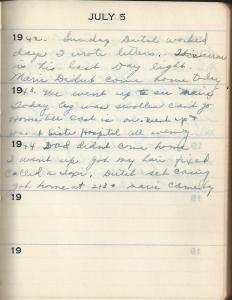 JULY 5
1942. Sunday Dutch worked
days I wrote letters. Tomorrow
is his last Day light.
Marie Didnt come home today
1943. We went up to see
Today leg was swollen cant go
home till cast is on. went up
Sister Hospital all evening
1944 Dad didnt come home
I went up got my hair fixed
Called a Taxi. Dutch
got home at 2:30
19
19